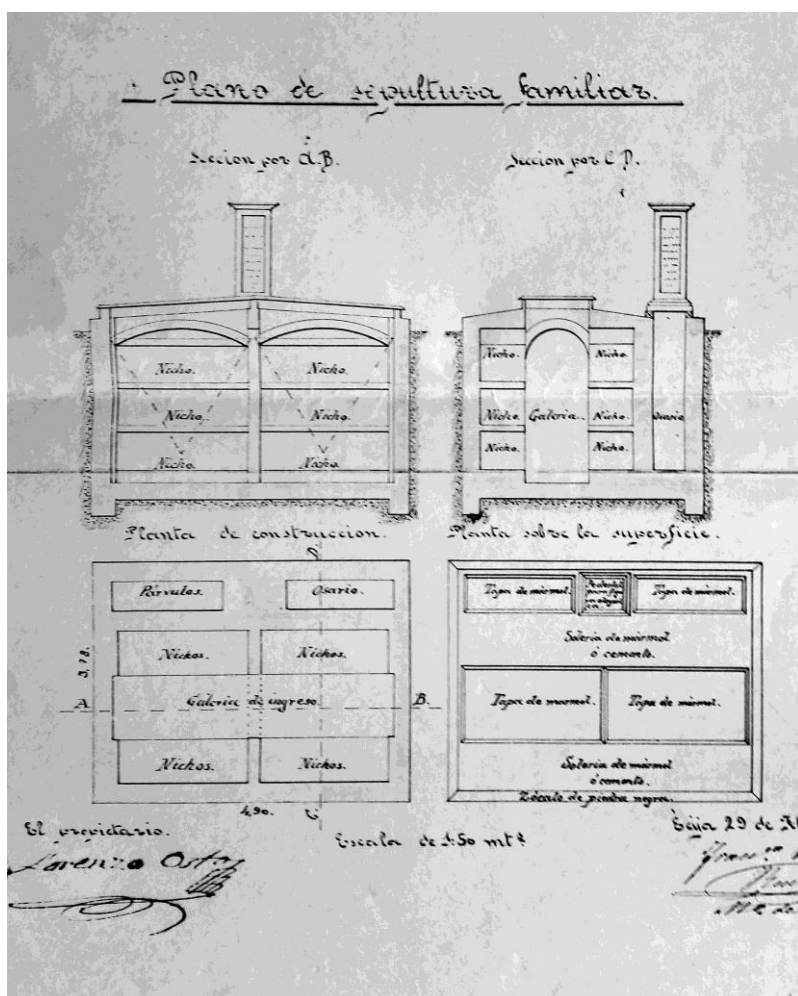 Plano de sepultura familiar.
Seccion por A.B.
Seccion por C.D.
Nicho. Nicho.
Nicho. Nicho.
Nicho. Nicho.
Nicho. Nicho.
Nicho. Galeria. Nicho. Osario
Nicho. Nicho.
Planta de construccion.
Planta sobre la superficie.
Párvulos. Osario.
Nichos. Nichos.
3,78.
A Galeria de ingreso. B.
Nichos. Nichos.
4,90.
Tapa de mármol. Tapa de mármol.
Soleria de mármol
ó cemento.
Tapa de marmol. Tapa de marmol.
Soleria de mármol
ó cemento.
Zócalo de piedra negra.
El propietario.
Escala de 1:50 mtˢ
Ecija 29 de
Lorenzo